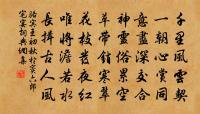 千里風雲契
一朝心賞同
意盡深交合
神靈俗累空
草帶銷寒翠
花枝發夜紅
唯將澹若水
長揖古人風
駱賓王初秋於竇六郎
宅宴詞典網集